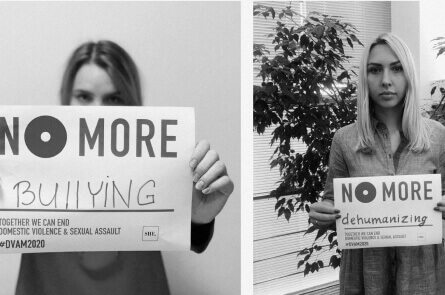 NO MORE
BUllYING
TOGETHER WE CAN END
DOMESTIC VIOLENCE & SEXUAL ASSAULT
#DVAM2020
NO MORE
dehumanizing
TOGETHER WE CAN END
DOMESTIC VIOLENCE & SEXUAL ASSAULT
#DVAM2020